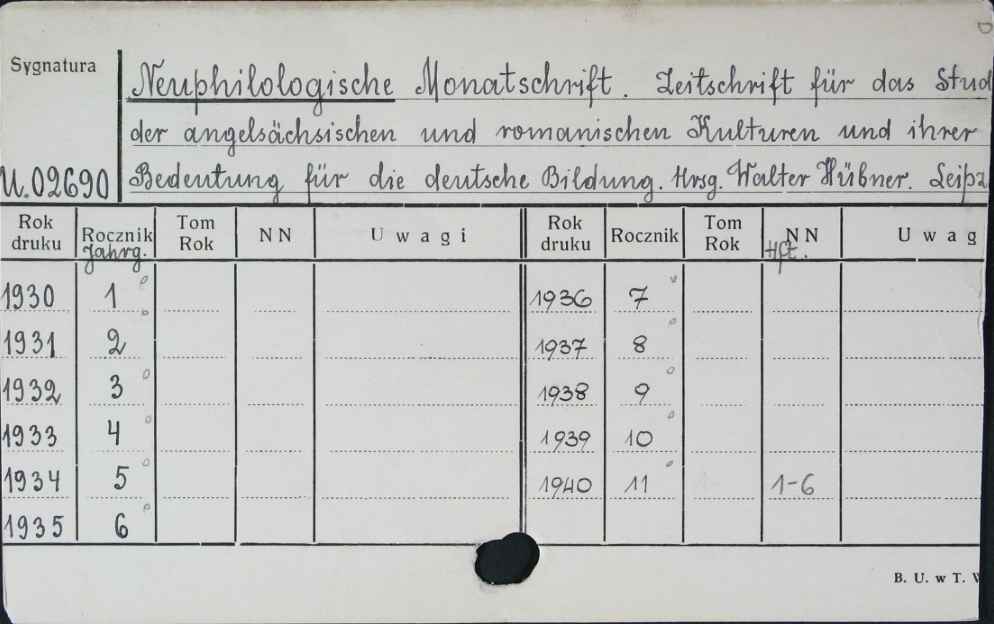 Sygnatura
Neuphilologische Monatschrift. Zeitschrift für das Stud
der angelsächsischen und romanischen Kulturen und ihrer
U.02690 Bedeutung für die deutsche Bildung. Hrsg. Walter Hübner. Leipz
Rok druku Rocznik Tom Rok NN Uwagi Rok druku Rocznik Tom Rok NN Uwag
Jahrg. Hft.
1930 1 1936 7
1931 2 1937 8
1932 3 1938 9
1933 4 1939 10
1934 5 1940 11 1-6
1935 6
B. U. w T.